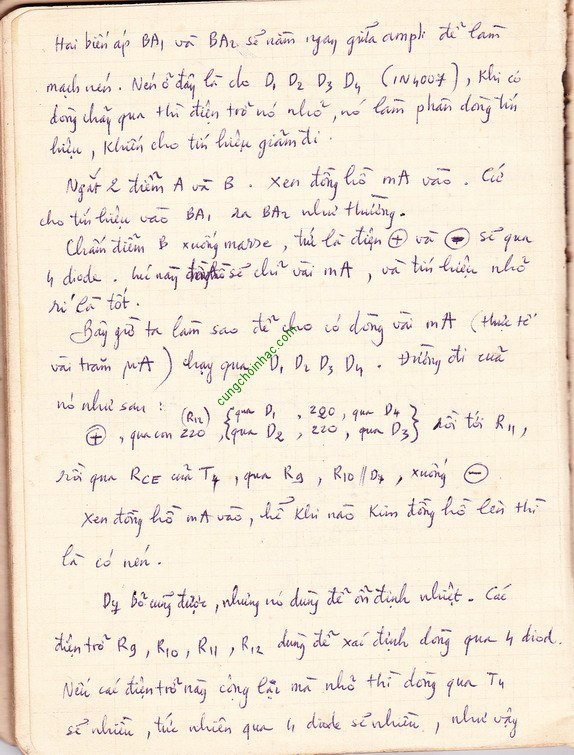 Hai biến áp BA1 và BA2 sẽ nằm ngay giữa ampli để làm
mạch nén. Nén ở đây là cho D1 D2 D3 D4 (1N4007), khi có
dòng chảy qua thì điện trở nó nhỏ, nó làm phân dòng tín
hiệu, khiến cho tín hiệu giảm đi.
Ngắt 2 điểm A và B. Xen đồng hồ mA vào. Cứ
cho tín hiệu vào BA1 ra BA2 như thường.
Chấm điểm B xuống masse, tức là điện ⊕ và ⊖ sẽ qua
4 diode. Lúc này sẽ chỉ vài mA, và tín hiệu nhỏ
rí là tốt.
Bây giờ ta làm sao để cho có dòng vài mA (thực tế
vài trăm μA) chạy qua D1 D2 D3 D4. Đường đi của
nó như sau:
cungchoinhac.com
⊕, qua con 220 (R12), {qua D1, 220, qua D4
qua D2, 220, qua D3} rồi tới R11,
rồi qua RCE của T4, qua R9, R10 // D7, xuống ⊖
Xen đồng hồ mA vào, hễ khi nào kim đồng hồ lên thì
là có nén.
D7 bỏ cũng được, nhưng nó dùng để ổn định nhiệt. Các
điện trở R9, R10, R11, R12 dùng để xác định dòng qua 4 diod.
Nếu các điện trở này cộng lại mà nhỏ thì dòng qua T4
sẽ nhiều, tức nhiên qua 4 diode sẽ nhiều, như vậy